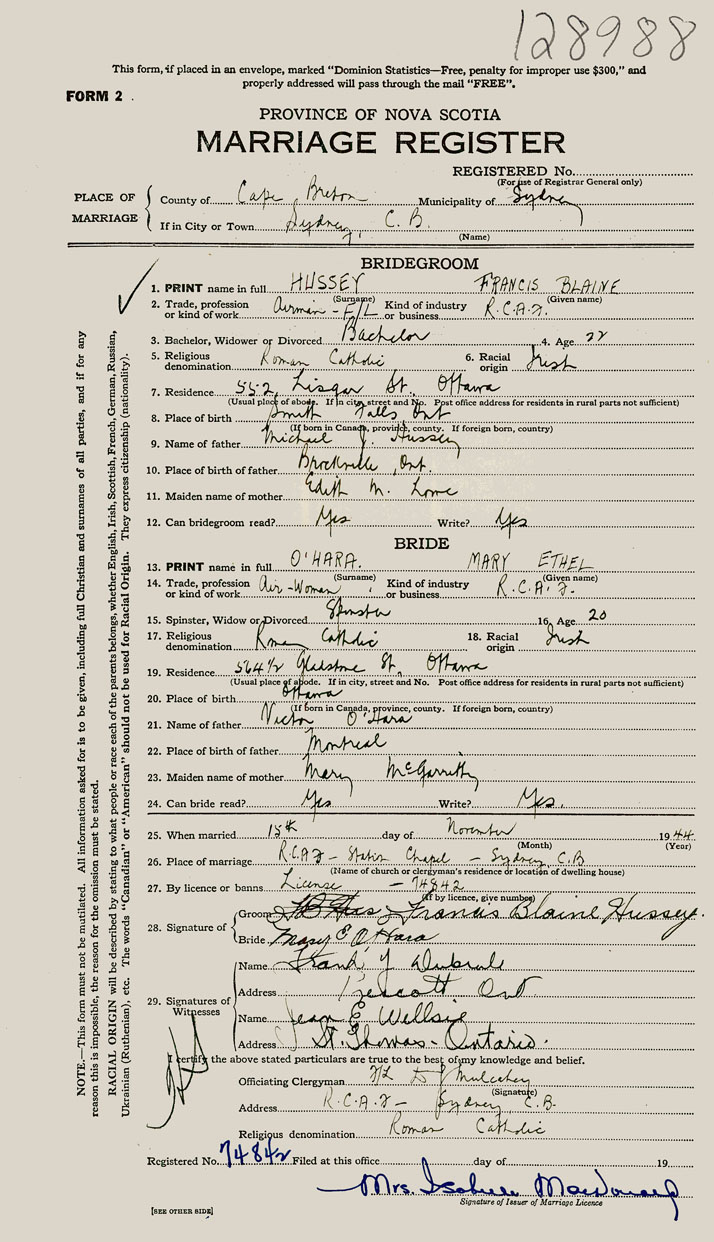 128988
This form, if placed in an envelope, marked "Dominion Statistics—Free, penalty for improper use $300," and
properly addressed will pass through the mail "FREE".
FORM 2
PROVINCE OF NOVA SCOTIA
MARRIAGE REGISTER
REGISTERED No.
(For use of Registrar General only)
PLACE OF MARRIAGE
County of Cape Breton Municipality of Sydney
If in City or Town Sydney, C. B.
(Name)
BRIDEGROOM
1. PRINT name in full HUSSEY FRANCIS BLAINE
(Surname) (Given name)
2. Trade, profession or kind of work Airman - F/L Kind of industry or business R.C.A.F.
3. Bachelor, Widower or Divorced Bachelor 4. Age 22
5. Religious denomination Roman Catholic 6. Racial origin Irish
7. Residence 552 Lisgar St. Ottawa
(Usual place of abode. If in city, street and No. Post office address for residents in rural parts not sufficient)
8. Place of birth Smith Falls Ont
(If born in Canada, province, county. If foreign born, country)
9. Name of father Michael J. Hussey
10. Place of birth of father Brockville, Ont.
11. Maiden name of mother Edith M. Lowe
12. Can bridegroom read? Yes Write? Yes
BRIDE
13. PRINT name in full O'HARA. MARY ETHEL
(Surname) (Given name)
14. Trade, profession or kind of work Air-Woman Kind of industry or business R.C.A.F.
15. Spinster, Widow or Divorced Spinster 16. Age 20
17. Religious denomination Roman Catholic 18. Racial origin Irish
19. Residence 564½ Gladstone St. Ottawa
(Usual place of abode. If in city, street and No. Post office address for residents in rural parts not sufficient)
20. Place of birth Ottawa
(If born in Canada, province, county. If foreign born, country)
21. Name of father Victor O'Hara
22. Place of birth of father Montreal
23. Maiden name of mother Mary McGarrity
24. Can bride read? Yes Write? Yes.
25. When married 15th day of November 1944
(Month) (Year)
26. Place of marriage R.C.A.F - Station Chapel - Sydney, C.B
(Name of church or clergyman's residence or location of dwelling house)
27. By licence or banns License - 74842
(If by licence, give number)
28. Signature of
Groom Francis Blaine Hussey.
Bride Mary E O'Hara
29. Signatures of Witnesses
Name Frank J
Address Prescott Ont
Name Jean E
Address St. Thomas - Ontario.
I certify the above stated particulars are true to the best of my knowledge and belief.
Officiating Clergyman F/L Mulcahey
(Signature)
Address R.C.A.F - Sydney C.B.
Religious denomination Roman Catholic
Registered No. 74842 Filed at this office day of 19
Mrs. Isabell MacDonald
Signature of Issuer of Marriage Licence
[SEE OTHER SIDE]
NOTE.—This form must not be mutilated. All information asked for is to be given, including full Christian and surnames of all parties, and if for any
reason this is impossible, the reason for the omission must be stated.
RACIAL ORIGIN will be described by stating to what people or race each of the parents belongs, whether English, Irish, Scottish, French, German, Russian,
Ukrainian (Ruthenian), etc. The words "Canadian" or "American" should not be used for Racial Origin. They express citizenship (nationality).